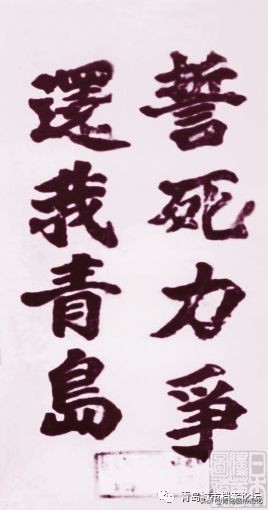 誓死力爭
還我青島
青岛城市档案论坛